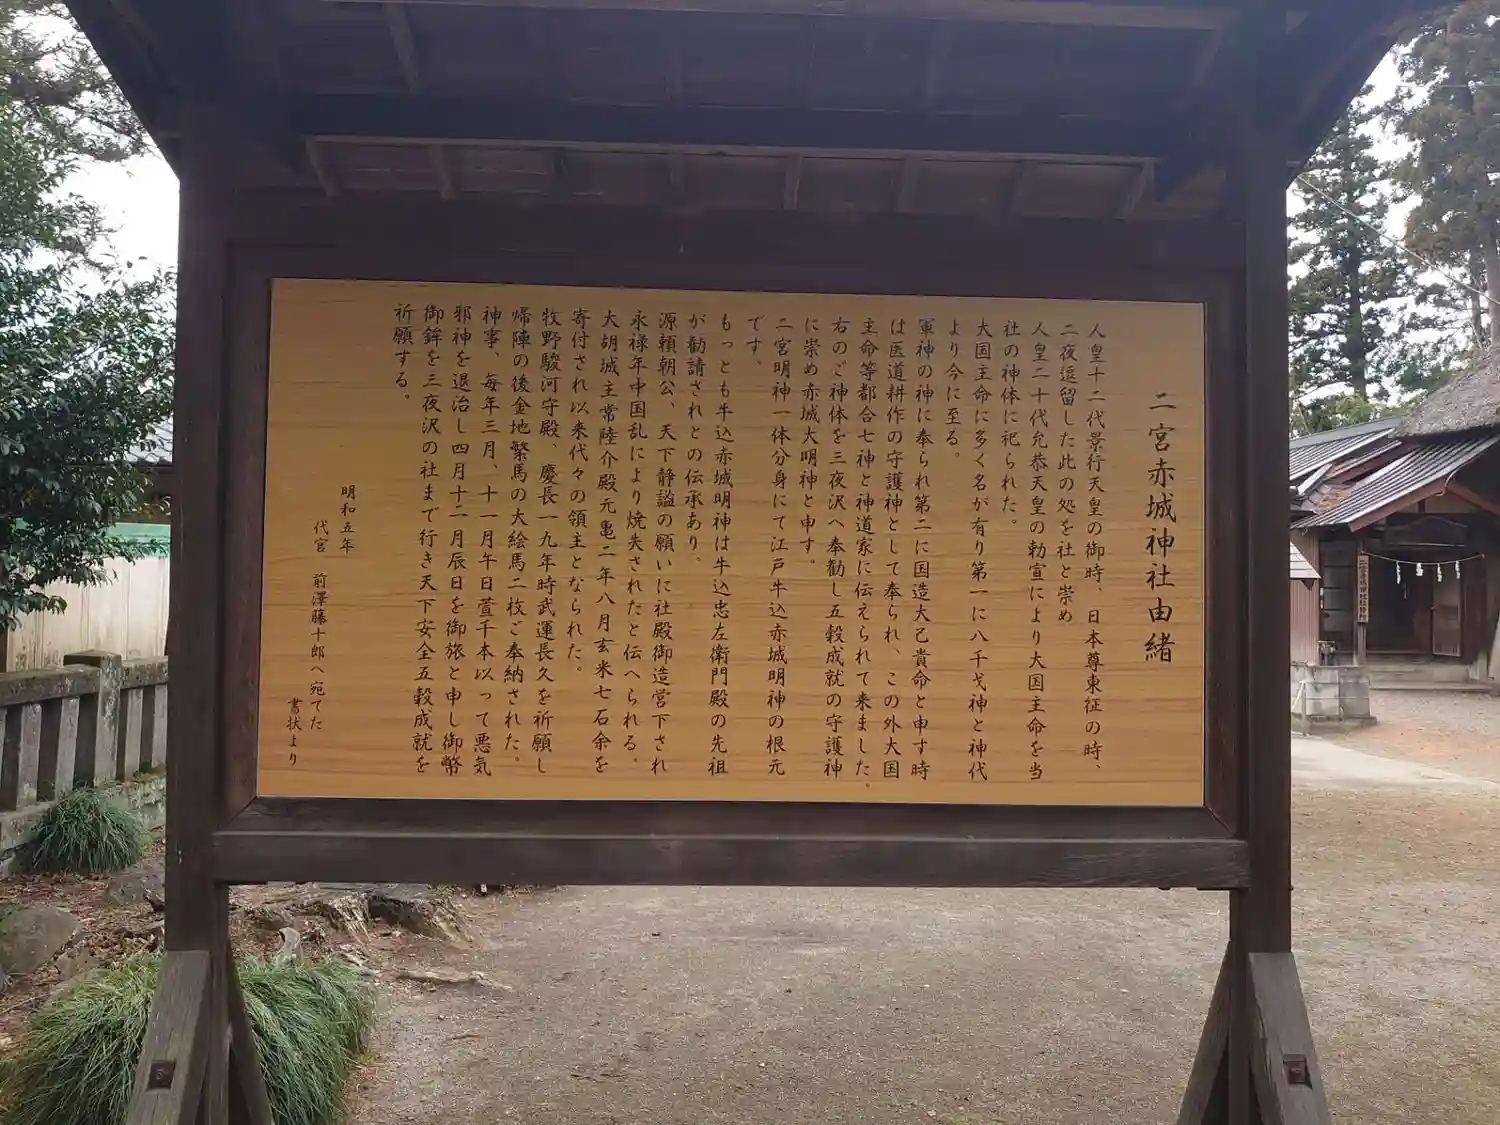 二宮赤城神社由緒
人皇十二代景行天皇の御時、日本尊東征の時、
二夜逗留した此の処を社と崇め
人皇二十代允恭天皇の勅宣により大国主命を当
社の神体に祀られた。
大国主命に多く名が有り第一に八千戈神と神代
より今に至る。
軍神の神に奉られ第二に国造大己貴命と申す時
は医道耕作の守護神として奉られ、この外大国
主命等都合七神と神道家に伝えられて来ました。
右のご神体を三夜沢へ奉勧し五穀成就の守護神
に崇め赤城大明神と申す。
二宮明神一体分身にて江戸牛込赤城明神の根元
です。
もっとも牛込赤城明神は牛込忠左衛門殿の先祖
が勧請されとの伝承あり、
源頼朝公、天下静謐の願いに社殿御造営下され
永禄年中国乱により焼失されたと伝へられる。
大胡城主常陸介殿元亀二年八月玄米七石余を
寄付され以来代々の領主となられた。
牧野駿河守殿、慶長一九年時武運長久を祈願し
帰陣の後金地繋馬の大絵馬二枚ご奉納された。
神事、毎年三月、十一月午日萱千本以って悪気
邪神を退治し四月十二月辰日を御旅と申し御幣
御鉾を三夜沢の社まで行き天下安全五穀成就を
祈願する。
明和五年
代官 前澤藤十郎へ宛てた
書状より